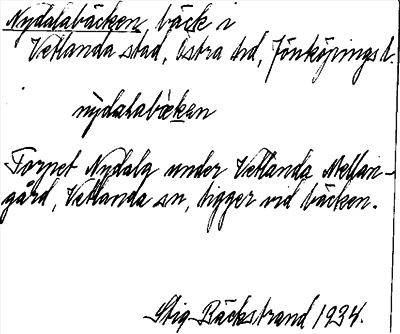 Nydalabäcken, bäck i
Vetlanda stad, Östra hd, Jönköpings l.
nỳdalabæken
Torpet Nydala under Vetlanda Mellan-
gård, Vetlanda sn, ligger vid bäcken.
Stig Bäckstrand 1934.